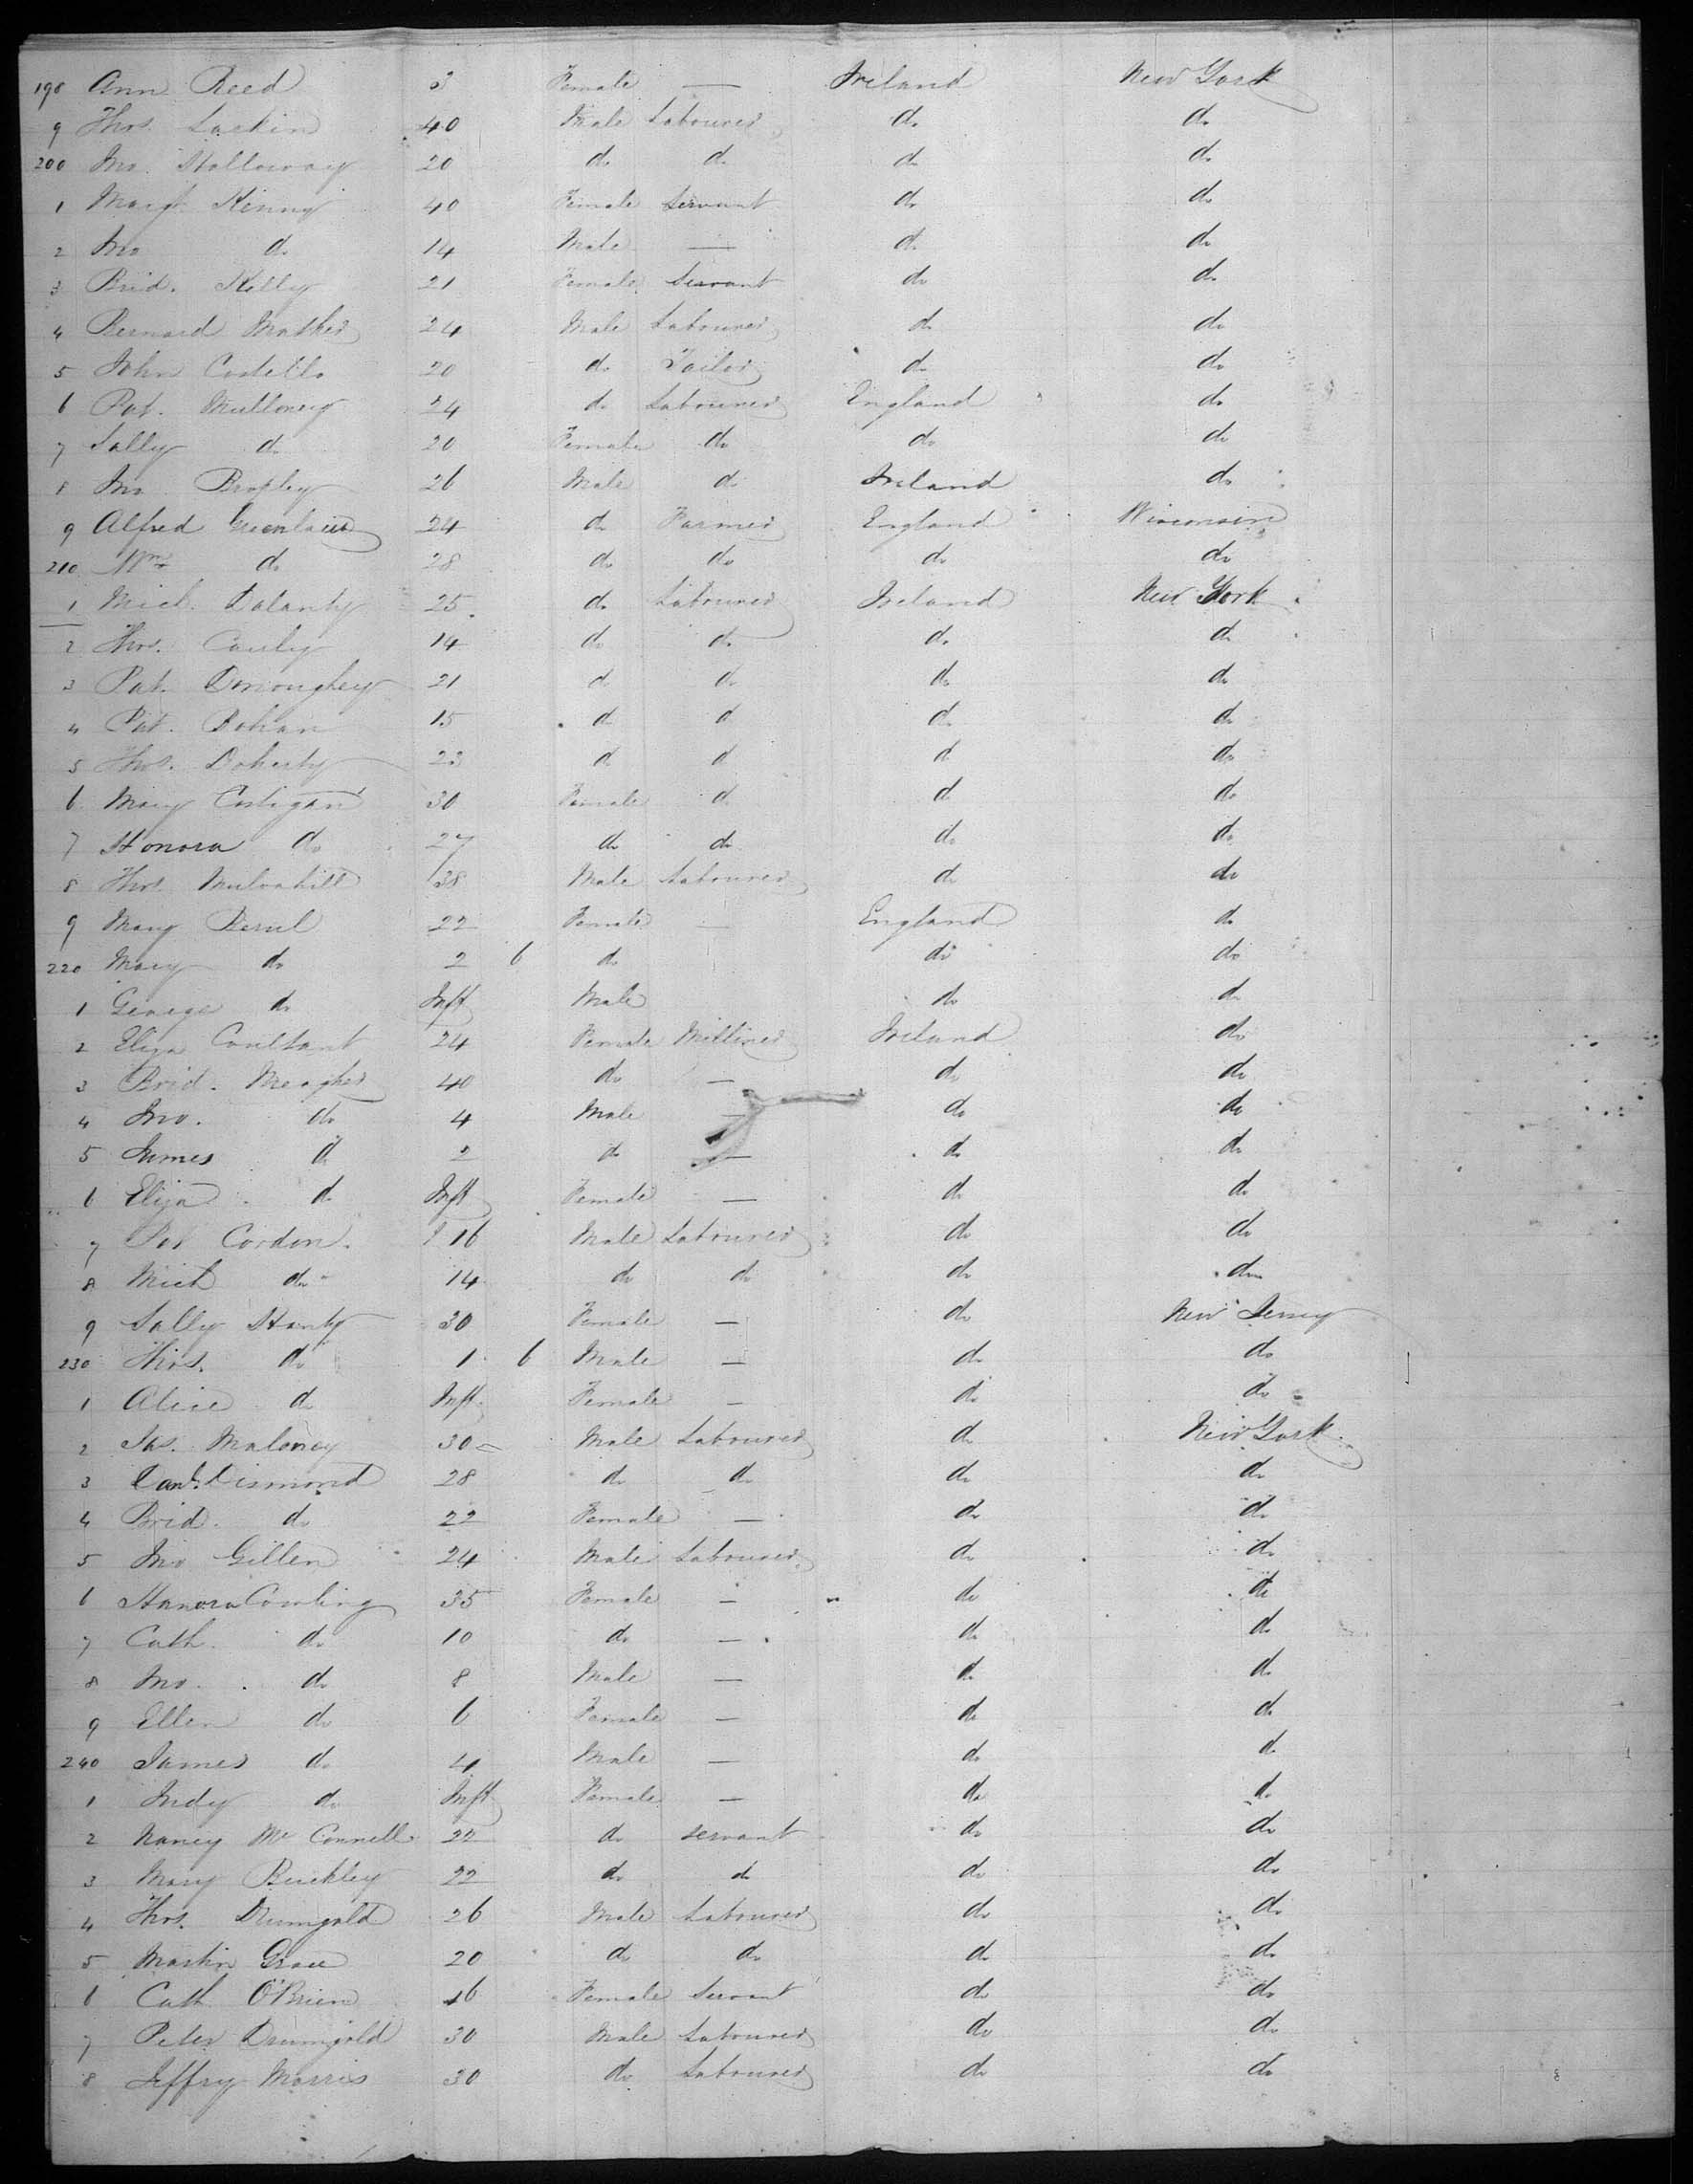 198 Ann Reed 3 Female — Ireland New York
9 Thos. Larkin 40 Male Labourer do do
200 Jno. Holloway 20 do do do do
1 Margt. Kenny 40 Female Servant do do
2 Jno do 14 Male — do do
3 Brid. Kelly 21 Female Servant do do
4 Bernard Mather 24 Male Labourer do do
5 John Costello 20 do Tailor do do
6 Pat. Mulloney 24 do Labourer England do
7 Sally do 20 Female do do do
8 Jno Brophy 26 Male do Ireland do
9 Alfred 24 do Farmer England Wisconsin
210 Wm do 28 do do do do
1 Mich. Dalanty 25 do Labourer Ireland New York
2 Thos. 14 do do do do
3 Pat. Donoughey 21 do do do do
4 Pat. Bohan 15 do do do do
5 Thos. Doherty 23 do do do do
6 Mary Costigan 30 Female do do do
7 Honora do 27 do do do do
8 Thos. Mulvahill 38 Male Labourer do do
9 Mary 22 Female — England do
220 Mary do 2 6 do do do
1 George do Inft Male do do
2 Eliza Coultant 24 Female Milliner Ireland do
3 Brid. Meagher 40 do — do do
4 Jno. do 4 Male — do do
5 James do 2 do — do do
6 Eliza do Inft Female — do do
7 Pat Cordon. 16 Male Labourer do do
8 Mich do 14 do do do do
9 Sally Hanty 30 Female — do New Jersey
230 Thos. do 1 6 Male — do do
1 Alice do Inft. Female — do do
2 Jas. Maloney 30 Male Labourer do New York
3 Danl. Dismond 28 do do do do
4 Brid. do 22 Female — do do
5 Jno Gillen 24 Male Labourer do do
6 Hanora Cowling 35 Female — do do
7 Cath. do 10 do — do do
8 Jno. do 8 Male — do do
9 Ellen do 6 Female — do do
240 James do 4 Male — do do
1 Judy do Inft Female — do do
2 Nancy Mc Connell 22 do servant do do
3 Mary Buckley 22 do do do do
4 Thos. Drumgold 26 Male Labourer do do
5 Martin Grace 20 do do do do
6 Cath O'Brien 16 Female Servant do do
7 Peter Drumgold 30 Male Labourer do do
8 Jeffry Morris 30 do Labourer do do